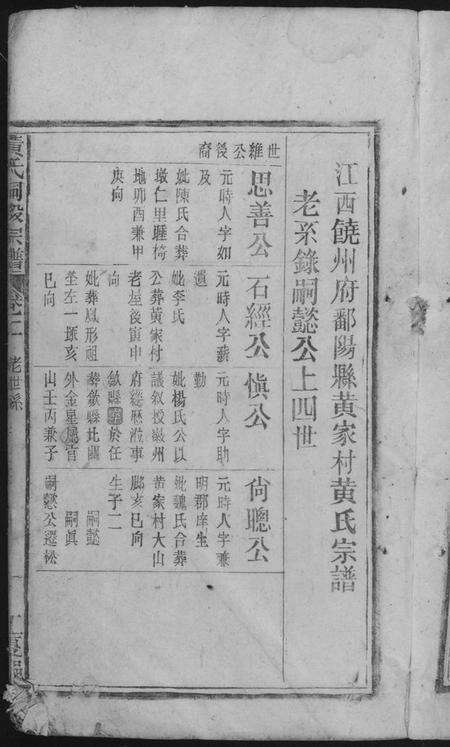 江西饒州府鄱陽縣黄家村黄氏宗譜
老系錄嗣懿公上四世
世維公後裔
思善公
元時人字如
及
妣陳氏合葬
墩仁里騄椅
地卯酉兼甲
庚向
石經公
元時人字薪
遺
妣李氏
公葬黄家村
老屋後寅申
向
妣葬鳳形祖
坐左一㧞亥
巳向
慎公
元時人字助
勤
妣楊氏公以
議叙授徽州
府經歷涖事
歙縣卒於任
葬歙縣北關
外金星屬官
山壬丙兼子
尚聰公
元時人字兼
明郡庠生
妣魏氏合葬
黄家村大山
𨻶亥巳向
生子二
嗣懿
嗣眞
嗣懿公遷松
黄氏嗣毅宗譜
卷二
老世系